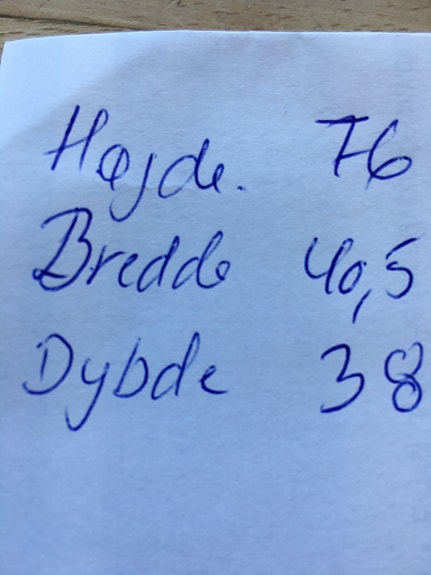 Højde. 76
Bredde 40,5
Dybde 38